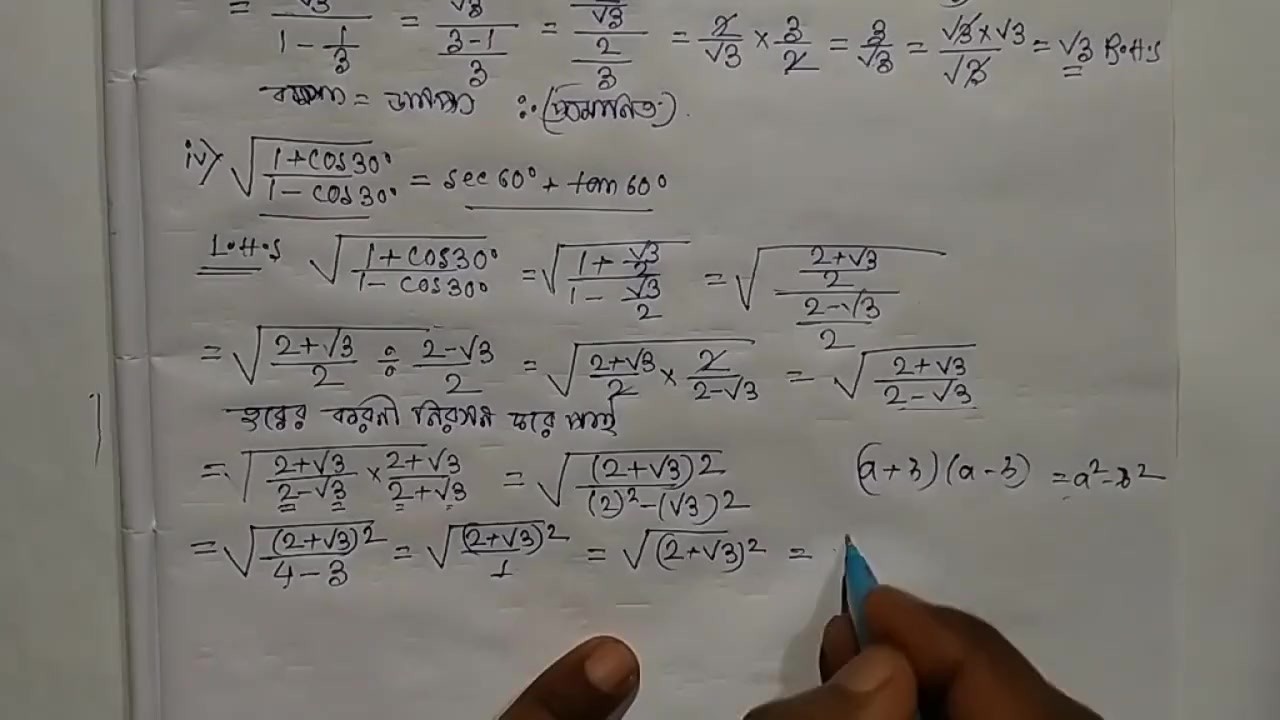 = √3 / (1 - 1/3) = √3 / ((3-1)/3) = √3 / (2/3) = 2/√3 × 3/2 = 3/√3 = (√3×√3)/√3 = √3 R.H.S
বামপক্ষ = ডানপক্ষ ∴ (প্রমাণিত).
iv) √((1+cos30°)/(1-cos30°)) = sec60° + tan60°
L.H.S √((1+cos30°)/(1-cos30°)) = √((1+√3/2)/(1-√3/2)) = √(((2+√3)/2)/((2-√3)/2))
= √((2+√3)/2 ÷ (2-√3)/2) = √((2+√3)/2 × 2/(2-√3)) = √((2+√3)/(2-√3))
হরের করণী নিরসন করে পাই
= √((2+√3)/(2-√3) × (2+√3)/(2+√3)) = √((2+√3)²/((2)²-(√3)²)) (a+b)(a-b) = a²-b²
= √((2+√3)²/(4-3)) = √((2+√3)²/1) = √(2+√3)² =